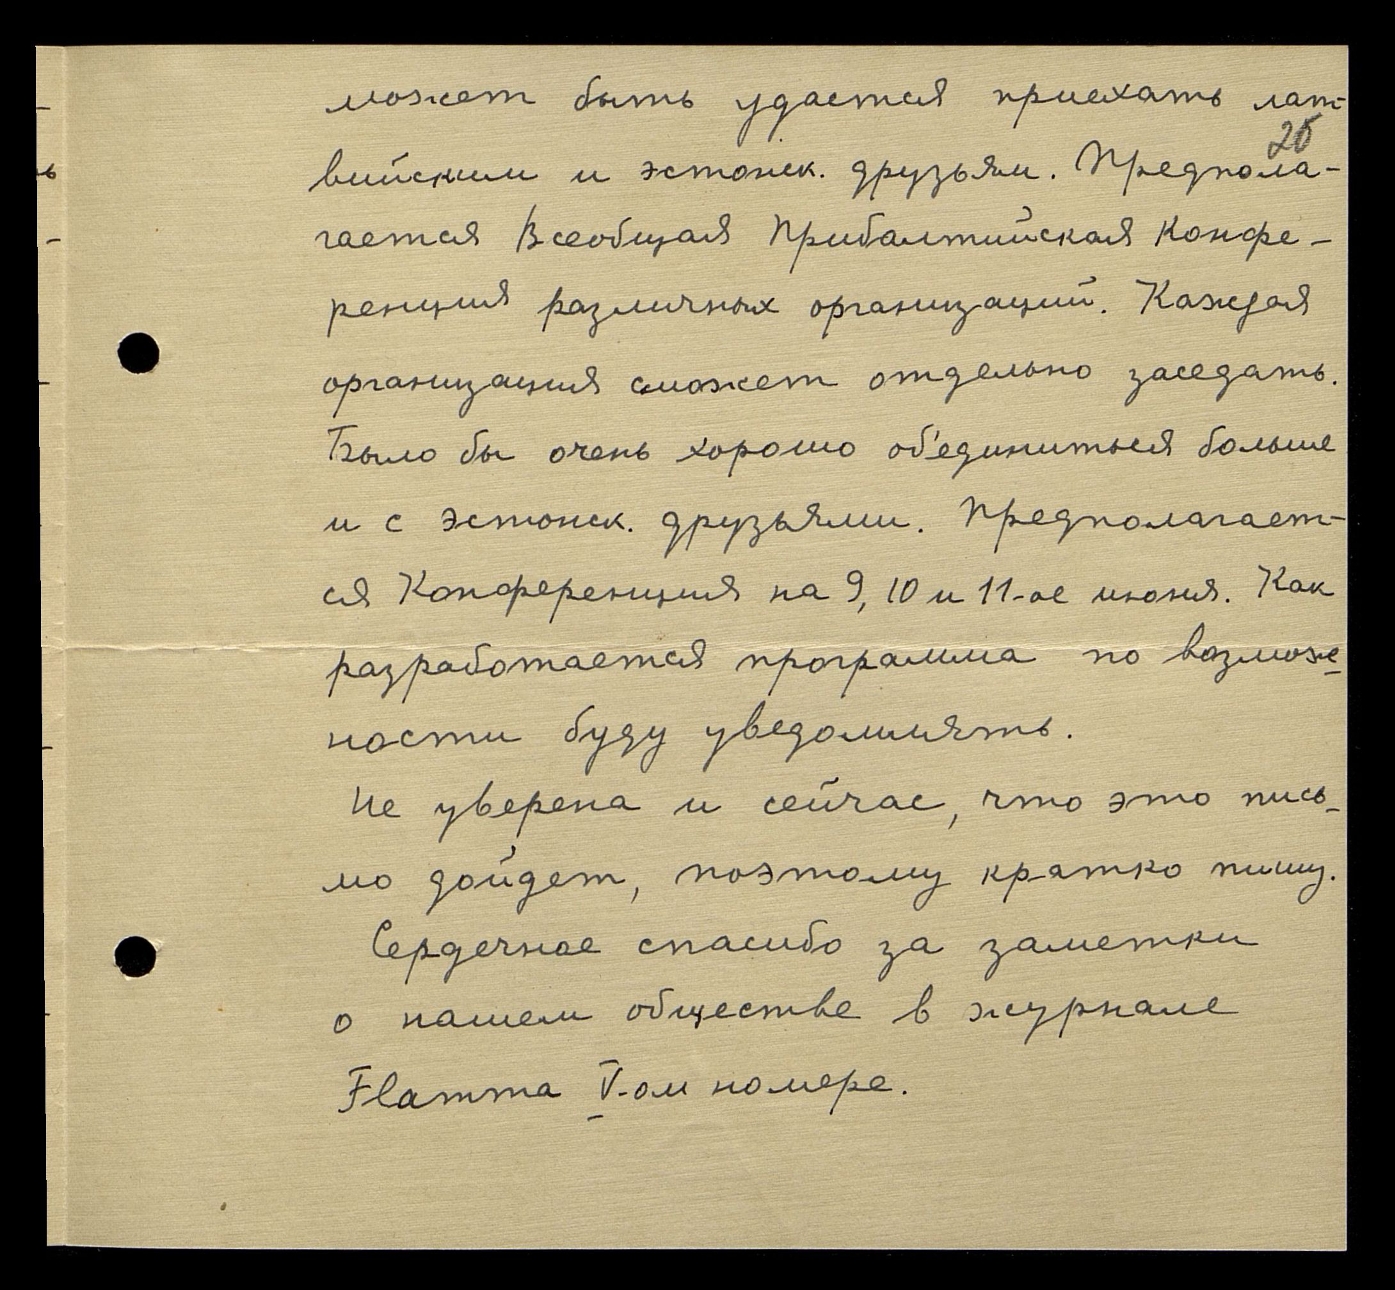 может быть удастся приехать лат-
25
вийским и эстонск. друзьям. Предпола-
гается Всеобщая Прибалтийская Конфе-
ренция различных организаций. Каждая
организация сможет отдельно заседать.
Было бы очень хорошо об'единиться больше
и с эстонск. друзьями. Предполагает-
ся Конференция на 9, 10 и 11-ое июня. Как
разработается программа по возмож-
ности буду уведомлять.
Не уверена и сейчас, что это пись-
мо дойдет, поэтому кратко пишу.
Сердечное спасибо за заметки
о нашем обществе в журнале
Flamma V-ом номере.